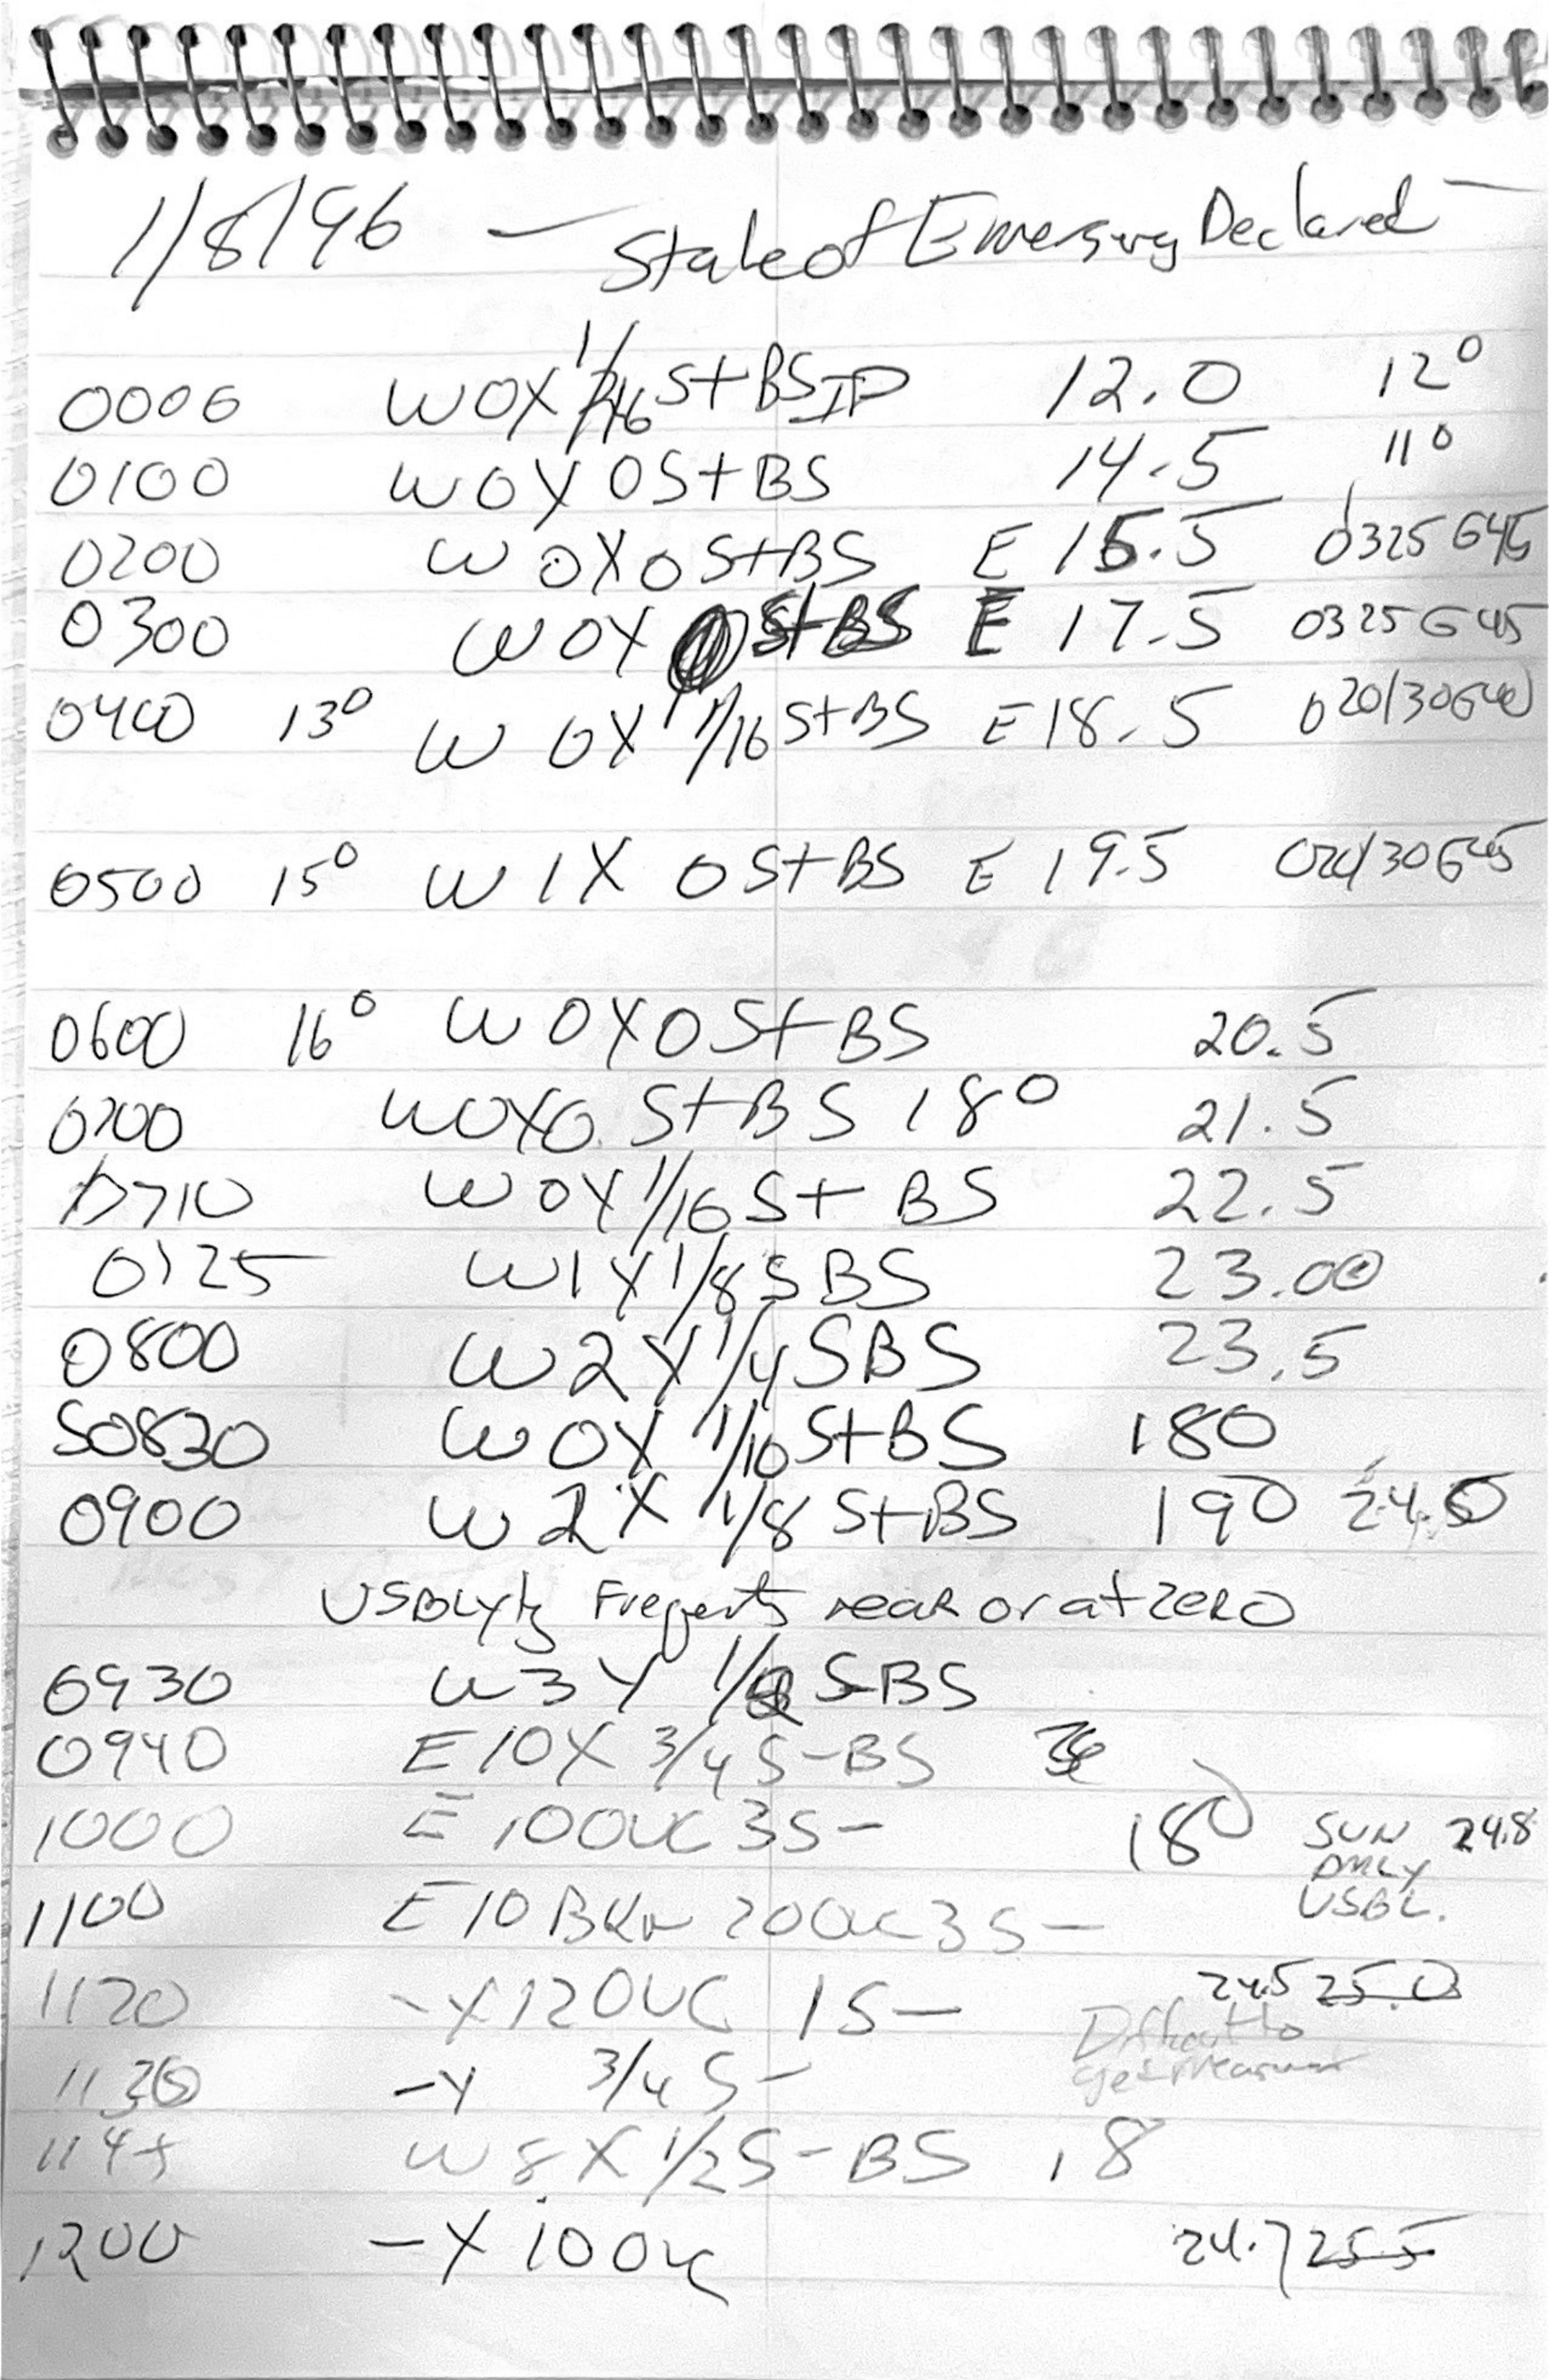 1/8/96 — State of Emergency Declared —
0000 W0X 1/16 S+BS IP 12.0 12°
0100 W0X 0S+BS 14.5 11°
0200 W0X0S+BS E 15.5 0325G45
0300 W0X 0 S+BS E 17.5 0325G45
0400 13° W 0X 1/16 S+BS E 18.5 020/30G40
0500 15° W 1X 0S+BS E 19.5 020/30G45
0600 16° W0X0S+BS 20.5
0700 W0X0 S+BS 18° 21.5
0710 W0X 1/16 S+ BS 22.5
0725 W1X 1/8 SBS 23.00
0800 W2X 1/4 SBS 23.5
S0830 W0X 1/16 S+BS 18°
0900 W2X 1/8 S+BS 19° 24.0
VSBLYty Freqently near or at zero
0930 W3X S-BS
0940 E10X 3/4 S-BS
1000 E 10OVC 3S- 18° SUN 24.8
ONLY
VSBL.
1100 E10 BKN 20OVC 3S-
1120 -X12OVC 1S- 24.5 25.0
Difficult to
get measurment
1130 -X 3/4 S-
1145 W8X 1/2S-BS 18
1200 -X 10OVC 24.7 25.5